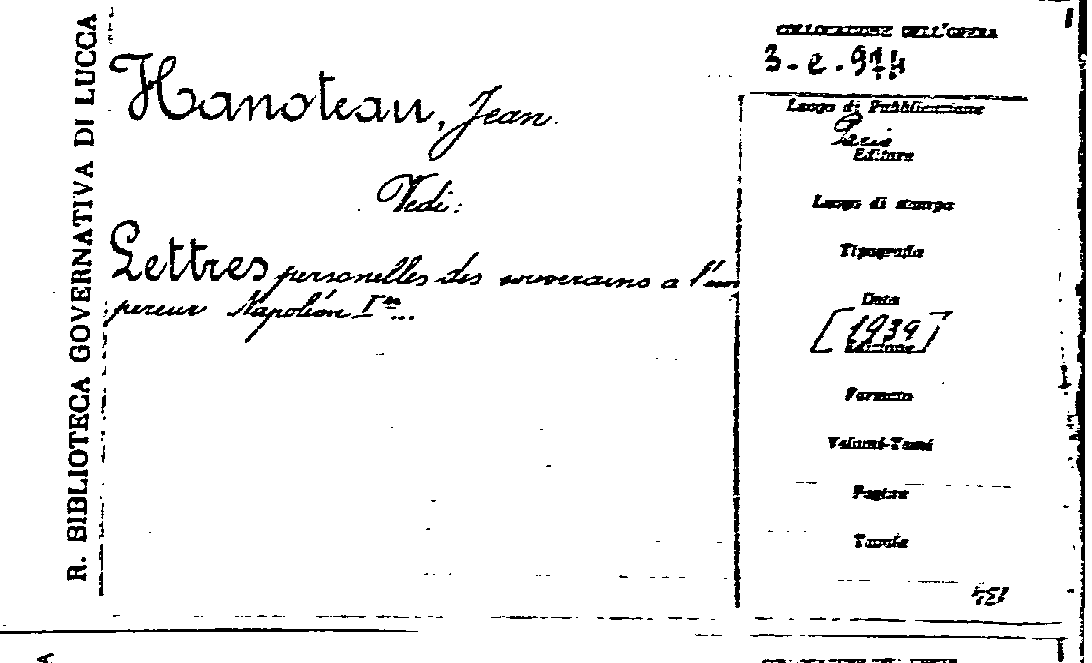 R. BIBLIOTECA GOVERNATIVA DI LUCCA
Hanoteau, Jean.
Vedi:
Lettres personelles des souverains a l'em
pereur Napoléon Ier...
COLLOCAZIONE DELL'OPERA
3-e-974
Luogo di Pubblicazione
Paris
Editore
Luogo di stampa
Tipografia
Data
[1939]
Edizione
Formato
Volumi-Tomi
Pagine
Tavole